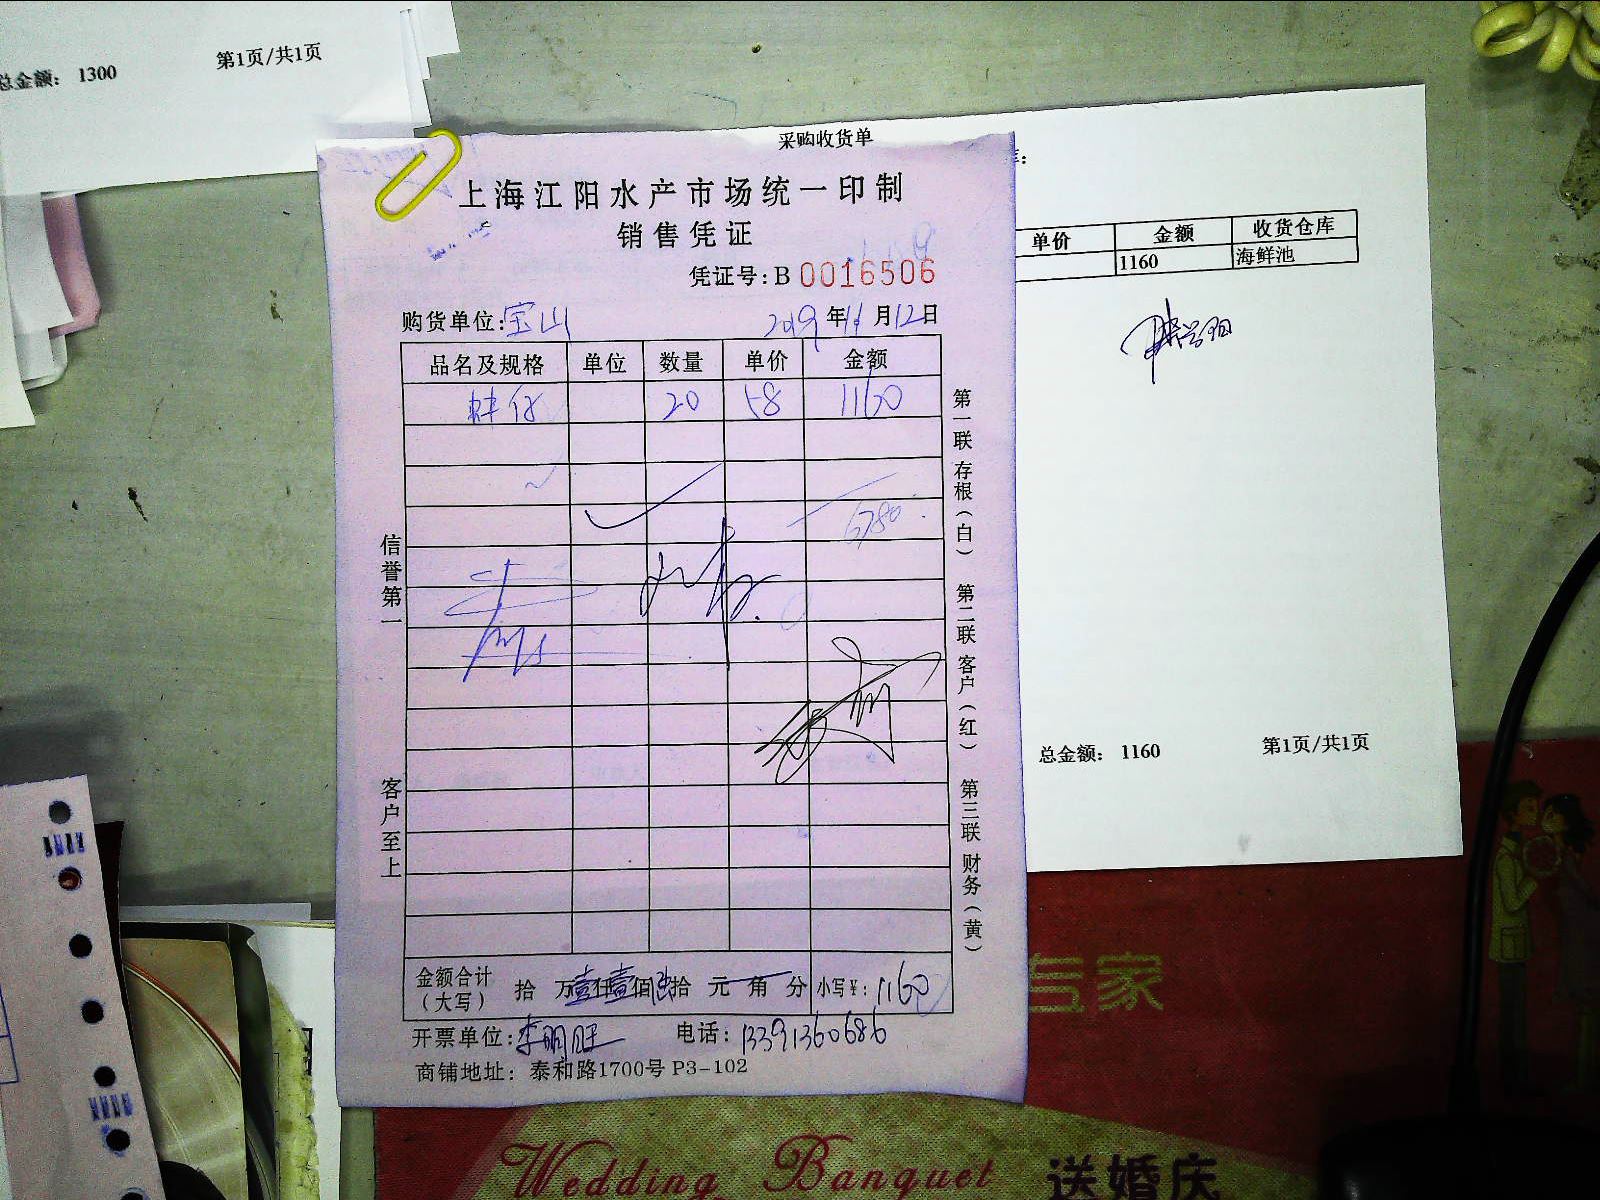 总金额： 1300 第1页/共1页
采购收货单
上海江阳水产市场统一印制
销售凭证
凭证号:B 0016506
购货单位:宝山 2019年11月12日
品名及规格 单位 数量 单价 金额
20 58 1160
6780
信誉第一
客户至上
第一联 存根（白） 第二联 客户（红） 第三联 财务（黄）
金额合计（大写） 拾 万壹仟壹佰陆拾 元 角 分 小写¥:1160
开票单位:李明旺 电话:13391360686
商铺地址: 泰和路1700号 P3-102
单价 金额 收货仓库
1160 海鲜池
总金额： 1160 第1页/共1页
专家
Wedding Banquet 送婚庆